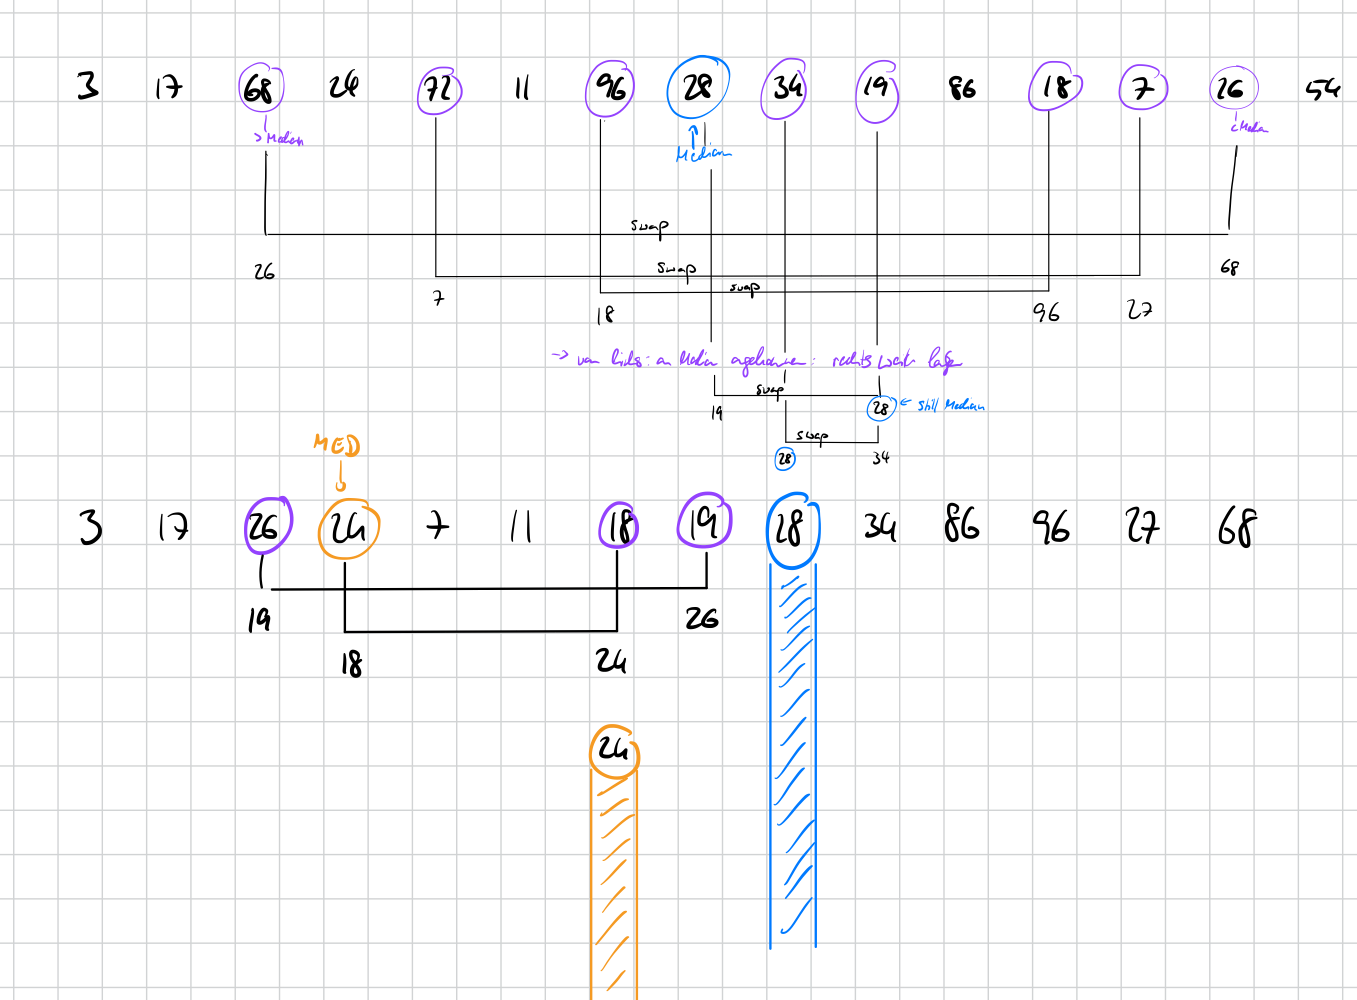 3 17 68 24 72 11 96 28 34 19 86 18 7 26 54
> Median
Median
< Median
swap
26 68
swap
7 27
swap
18 96
-> von links: an Median angekommen: rechts weiter laufen
swap
19 28 <- still Median
swap
28 34
MED
3 17 26 24 7 11 18 19 28 34 86 96 27 68
19 26
18 24
24